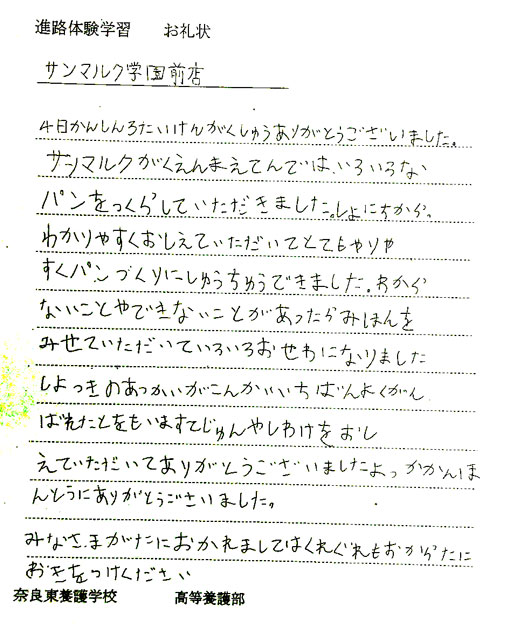 進路体験学習　　お礼状
サンマルク学園前店
4日かんしんろたいけんがくしゅうありがとうございました。
サンマルクがくえんまえてんでは、いろいろな
パンをつくらしていただきました。しょにちから、
わかりやすくおしえていただいてとてもやりや
すくパンづくりにしゅうちゅうできました。わから
ないことやできないことがあったらみほんを
みせていただいていろいろおせわになりました
しよっきのあつかいがこんかいいちばんよくがん
ばれたとをもいますてじゅんやしわけをおし
えていただいてありがとうございましたよっかかんほ
んとうにありがとうございました。
みなさまがたにおかれましてはくれぐれもおからたに
おきをつけください
奈良東養護学校　　高等養護部